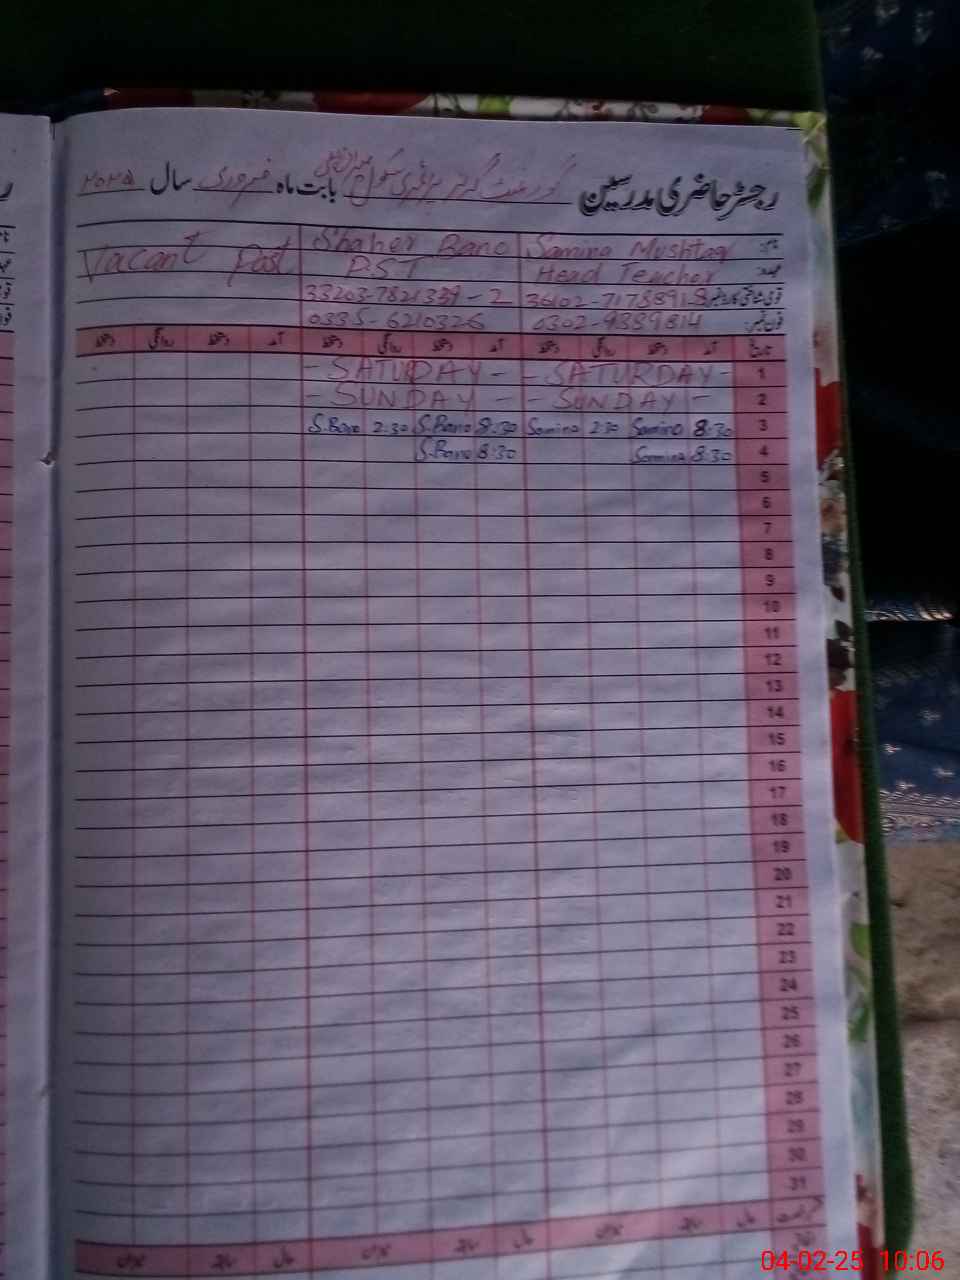 رجسٹر حاضری مدرسین گورنمنٹ گرلز پرائمری سکول بابت ماہ فروری سال ۲۰۲۵
نام: Samina Mushtaq Shaher Bano Vacant Post
عہدہ: Head Teacher P.S.T
قومی شناختی کارڈ نمبر 33203-7821339-2
فون نمبر: 0302-9339814 0335-6210326
تاریخ آمد دستخط روانگی دستخط آمد دستخط روانگی دستخط آمد دستخط روانگی دستخط
1 - SATURDAY - - SATURDAY -
2 - SUNDAY - - SUNDAY -
3 8:30 Samina 2:30 Samina 8:30 S.Bano 2:30 S.Bano
4 8:30 Samina 8:30 S.Bano
5
6
7
8
9
10
11
12
13
14
15
16
17
18
19
20
21
22
23
24
25
26
27
28
29
30
31
04-02-25 10:06